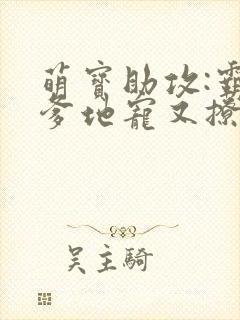 萌寶助攻:霸
爹地寵又撩
吴主騎